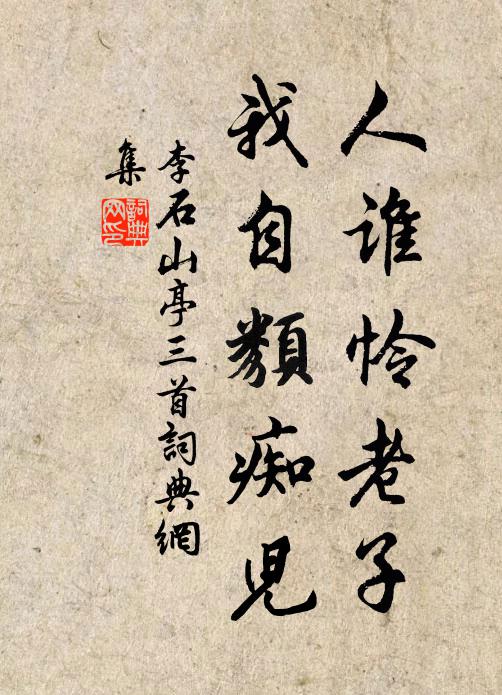 人誰怜老子
我自類痴兒
李石山亭三首詞典網
集
詞典網印